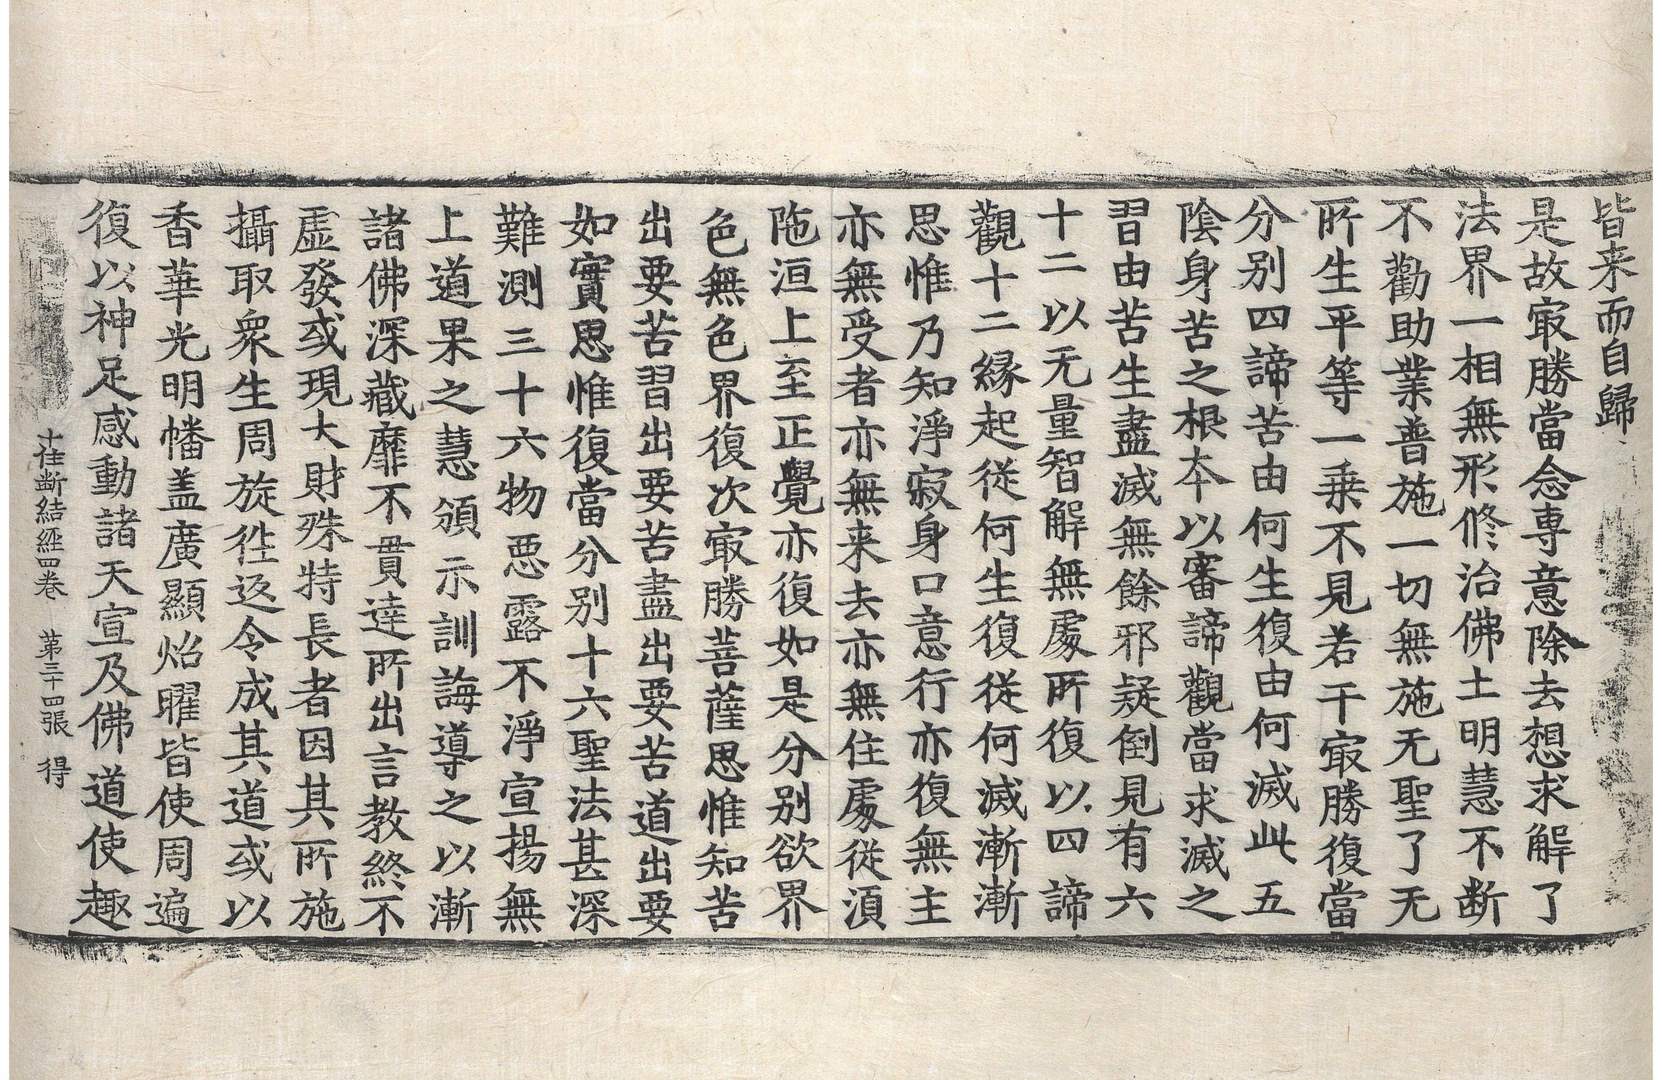 皆来而自歸
是故㝡勝當念専意除去想求解了
法界一相無形修治佛土明慧不断
不勸助業普施一切無施无聖了无
所生平等一乗不見若干㝡勝復當
分別四諦苦由何生復由何滅此五
陰身苦之根本以審諦觀當求滅之
習由苦生盡滅無餘邪疑倒見有六
十二以无量智解無處所復以四諦
觀十二縁起従何生復従何滅漸漸
思惟乃知淨寂身口意行亦復無主
亦無受者亦無来去亦無住處従湏
陁洹上至正覺亦復如是分別欲界
色無色界復次㝡勝菩薩思惟知苦
出要苦習出要苦盡出要苦道出要
如實思惟復當分別十六聖法甚深
難測三十六物惡露不淨宣揚無
上道果之慧頒示訓誨導之以漸
諸佛深藏靡不貫達所出言教終不
虚發或現大財殊特長者因其所施
攝取衆生周旋徃返令成其道或以
香華光明幡盖廣顯炤曜皆使周遍
復以神足感動諸天宣及佛道使趣
十住断結経四巻 第三十四張 得